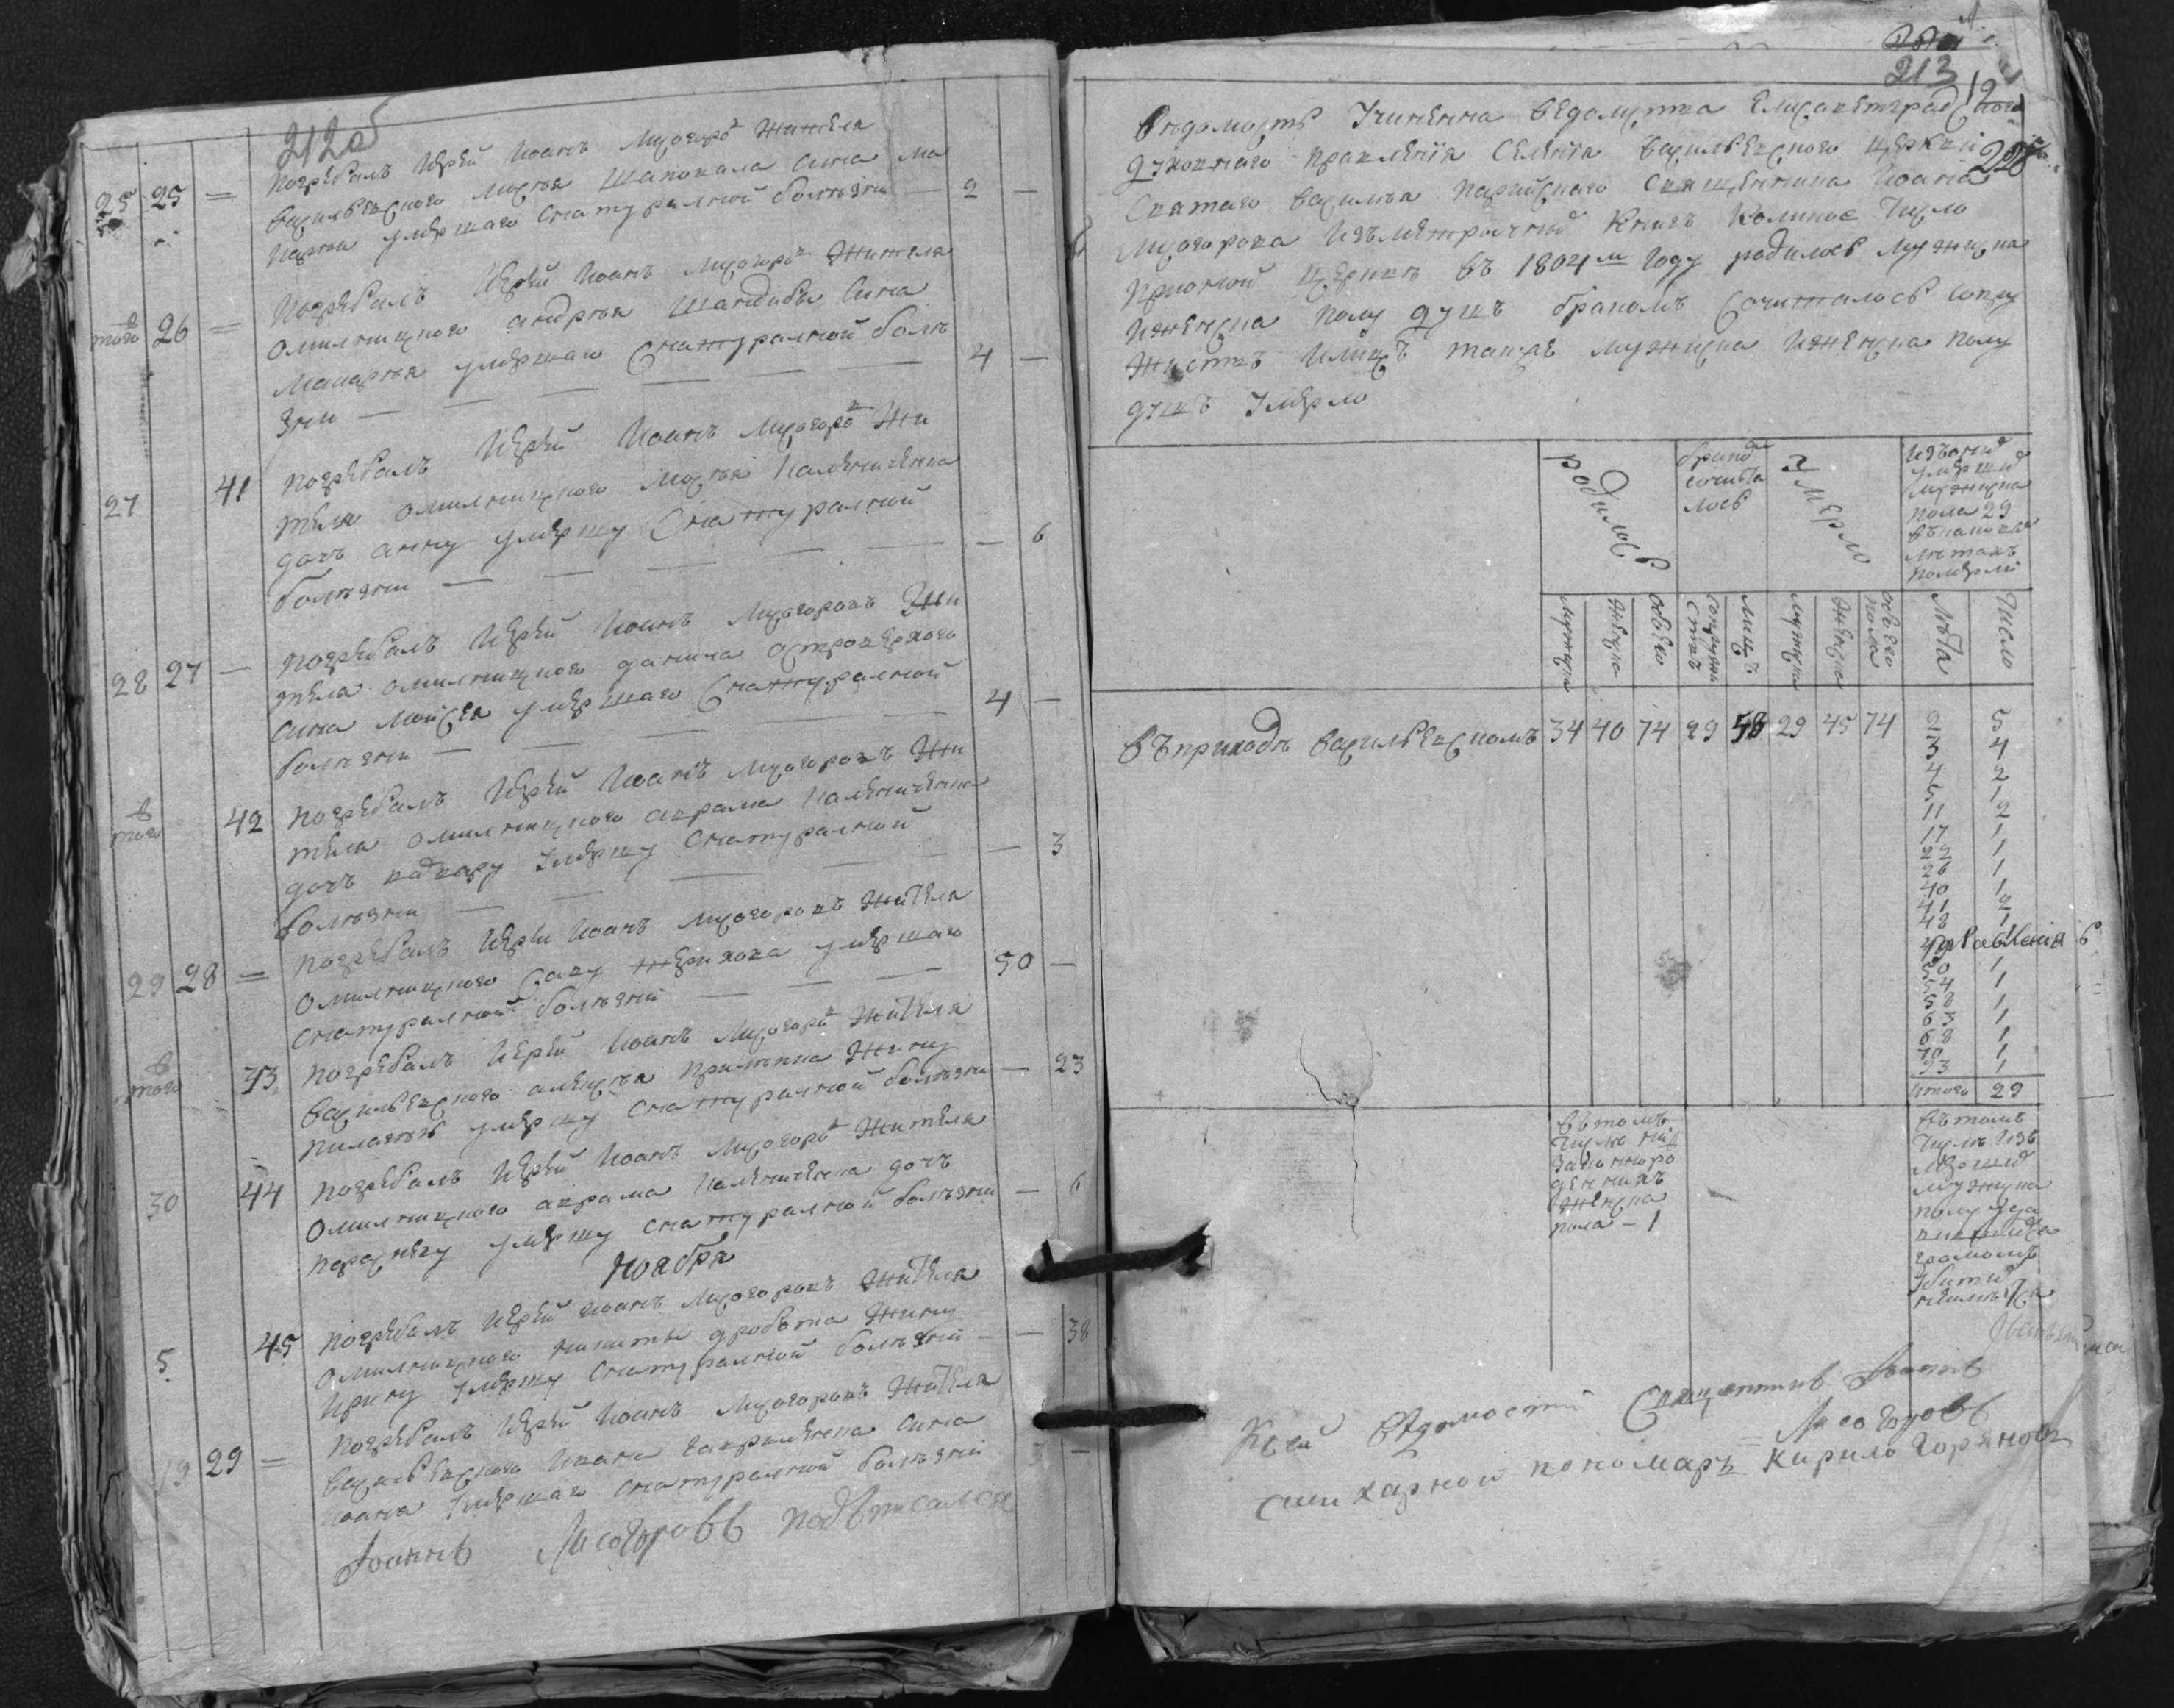 212об
25 25 = погребалъ Иерей Иоанъ Лисогоръ жителя
васильевского лукъя шаповала сина ма
кария умершаго снатуралной болѣзни 2 —
того 26 = погребалъ Иерей Иоанъ Лисогоръ жителя
омилницкого андрея шандиби сина
макария умершаго снатуралной болѣ
зни — — — — — 4 —
27 41 погребалъ Иерей Иоанъ Лисогоръ жи
теля омилницкого
дочъ анну умершу снатуралной
болѣзни — — — — — 6
28 27 — погребалъ Иерей Иоанъ Лисогоровъ жи
теля омилницкого данила островерхого
сина мойсея умершаго снатуралной
болѣзни — — — 4 —
того 42 погребалъ Иерей Иоанъ Лисогоровъ жи
теля омилницкого аврама
дочъ варвару умершу снатуралной
болѣзни — — — — 3
29 28 = погребалъ Иерей Иоанъ Лисогоровъ жителя
омилницкого саву умершаго
снатуралной болѣзни — — — 50 —
того 43 погребалъ Иерей Иоанъ Лисогоръ жителя
васильевского алексѣя жину
пилагию умершу снатуралной болѣзни — 23
30 44 погребалъ Иерей Иоанъ Лисогоръ жителя
омилницкого аврама дочъ
параскеву умершу снатуралной болѣзни — 6
Ноября
5 45 погребалъ Иерей Иоанъ Лисогоровъ жителя
омилницкого никиты дробота жину
ирину умершу снатуралной болѣзни — — 38
19 29 = погребалъ Иерей Иоанъ Лисогоровъ жителя
васильевского ивана гавриленка сина
иоана умершаго снатуралной болѣзни 3 —
Иоаннъ Лисогоровъ подъписался
213
228
Вѣдомость учиненна ведомства елисаветград
духовнаго правления селения васильевского церкви
святаго василия парийского священника Иоана
Лисогорова изъ метричнихъ книгъ коликое число
прионой церкви въ 1804м году родилось мужиска
иженска полу душъ бракомъ сочиталось супру
жествъ илицъ такжъ мужиска иженска полу
душъ умерло
родилось
браком сочита лось
умерло
изъонихъ умершихъ мужиска пола 29 въкаковихъ лѣтахъ померли
мужиска женска обоего супруже ствъ лицъ мужиска женска обоего пола лѣта число
въприходѣ васильевскомъ 34 40 74 29 58 29 45 74
2 5
3 4
4 2
5 1
11 2
17 1
22 1
26 1
40 1
41 2
43 1
50 1
54 1
58 1
63 1
68 1
70 1
93 1
итого 29
въ томъ
числѣ не
законноро
денныхъ
женска
пола — 1
въ томъ
числѣ изъ
мершихъ
мужиска
полу
громомъ
убитихъ
Ксей ведомости Священникъ Иоаннъ
Лисогоровъ
стихарной пономаръ Кирило Горяновъ